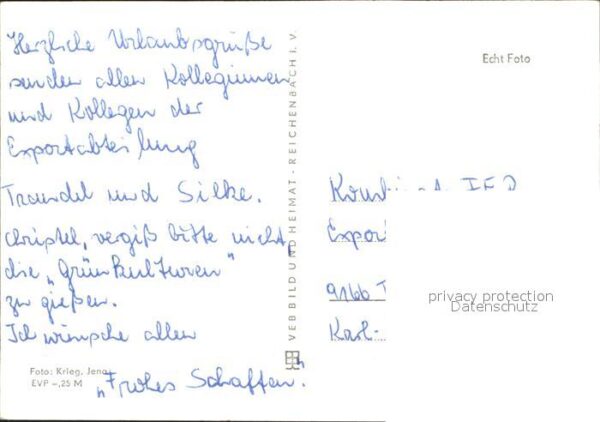 Herzliche Urlaubsgrüße
senden allen Kolleginnen
und Kollegen der
Exportabteilung
Traudel und Silke.
Christel, vergiß bitte nicht,
die „Grünkulturen"
zu gießen.
Ich wünsche allen
„Frohes Schaffen."
Foto: Krieg, Jena
EVP –,25 M
VEB BILD UND HEIMAT · REICHENBACH I. V.
Echt Foto
Expor
9166 T
Karl-
privacy protection
Datenschutz